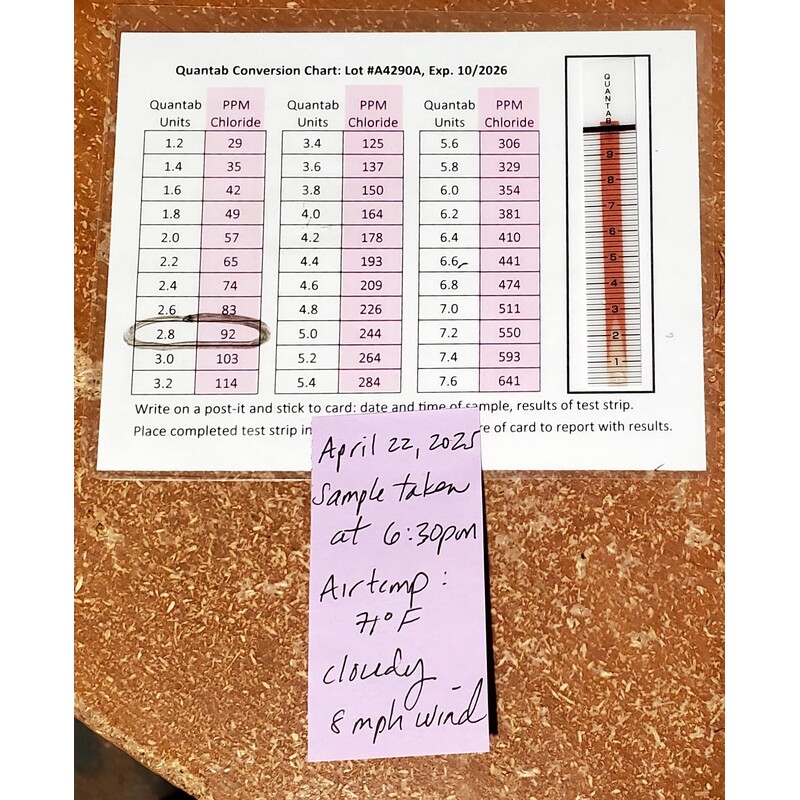 Quantab Conversion Chart: Lot #A4290A, Exp. 10/2026
Quantab Units PPM Chloride Quantab Units PPM Chloride Quantab Units PPM Chloride
1.2 29 3.4 125 5.6 306
1.4 35 3.6 137 5.8 329
1.6 42 3.8 150 6.0 354
1.8 49 4.0 164 6.2 381
2.0 57 4.2 178 6.4 410
2.2 65 4.4 193 6.6 441
2.4 74 4.6 209 6.8 474
2.6 83 4.8 226 7.0 511
2.8 92 5.0 244 7.2 550
3.0 103 5.2 264 7.4 593
3.2 114 5.4 284 7.6 641
QUANTAB
9
8
7
6
5
4
3
2
1
Write on a post-it and stick to card: date and time of sample, results of test strip.
Place completed test strip in re of card to report with results.
April 22, 2025
Sample taken
at 6:30pm
Air temp:
71° F
cloudy
8 mph wind